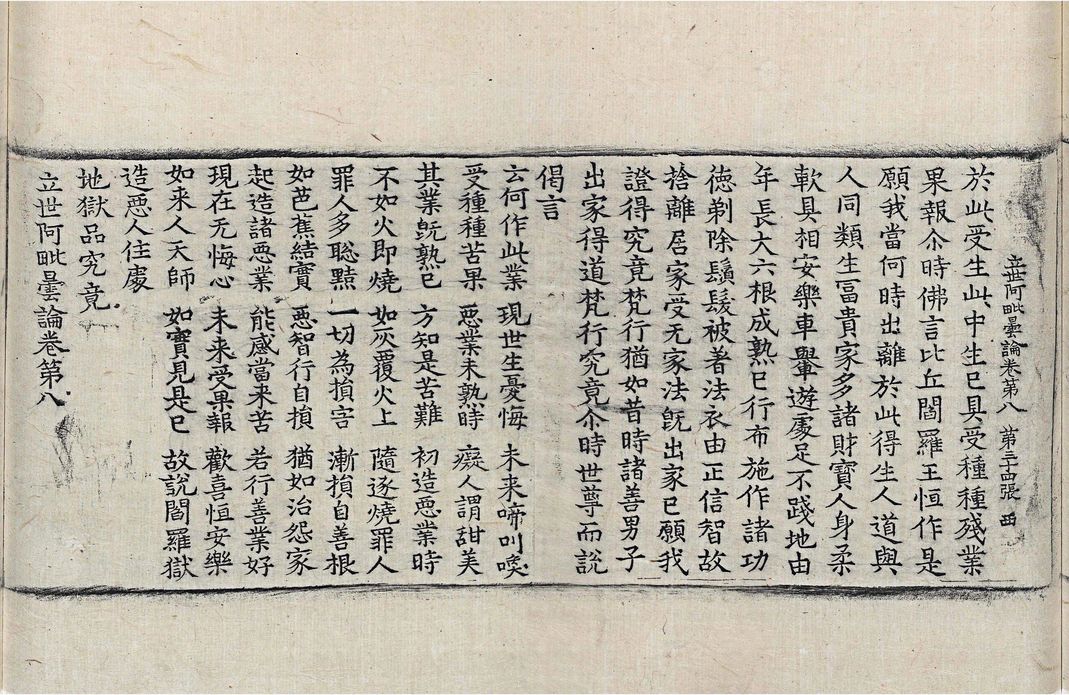 立世阿毗曇論卷第八 第三十四張 西
於此受生此中生已具受種種殘業
果報尒時佛言比丘閻羅王恒作是
願我當何時出離於此得生人道與
人同類生冨貴家多諸財寶人身柔
軟具相安樂車轝遊處足不踐地由
年長大六根成熟已行布施作諸功
德剃除鬚髮被著法衣由正信智故
捨離居家受无家法旣出家已願我
證得究竟梵行猶如昔時諸善男子
出家得道梵行究竟尒時世尊而說
偈言
云何作此業 現世生憂悔 未来啼叫喚
受種種苦果 惡業未熟時 癡人謂甜美
其業旣熟已 方知是苦難 初造惡業時
不如火即燒 如灰覆火上 隨逐燒罪人
罪人多聡黠 一切為損害 漸損自善根
如芭蕉結實 惡智行自損 猶如治怨家
起造諸惡業 能感當来苦 若行善業好
現在无悔心 未来受果報 歡喜恒安樂
如来人天師 如實見是已 故說閻羅獄
造惡人住處
地獄品究竟
立世阿毗曇論卷第八